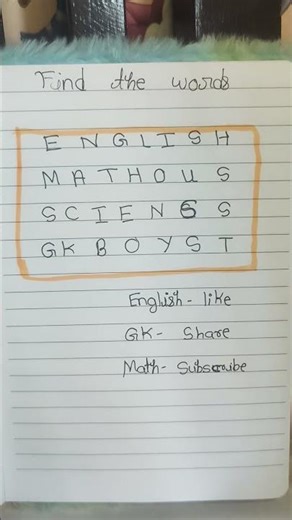 Find the words
E N G L I S H
M A T H O U S
S C I E N G S
GK B O Y S T
English - like
GK - Share
Math - Subscribe